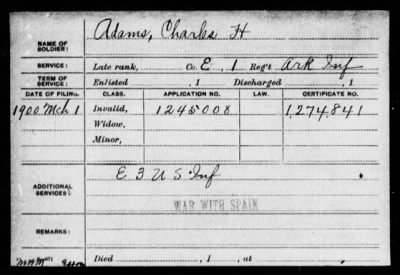 NAME OF SOLDIER: Adams, Charles H
SERVICE: Late rank, Co. E, 1 Reg't Ark Inf
TERM OF SERVICE: Enlisted , 1 Discharged , 1
DATE OF FILING. CLASS. APPLICATION NO. LAW. CERTIFICATE NO.
1900 Mch 1 Invalid, 1245008 1,274,841
Widow,
Minor,
ADDITIONAL SERVICES: E 3 U S Inf
WAR WITH SPAIN
REMARKS:
Died , 1 , at